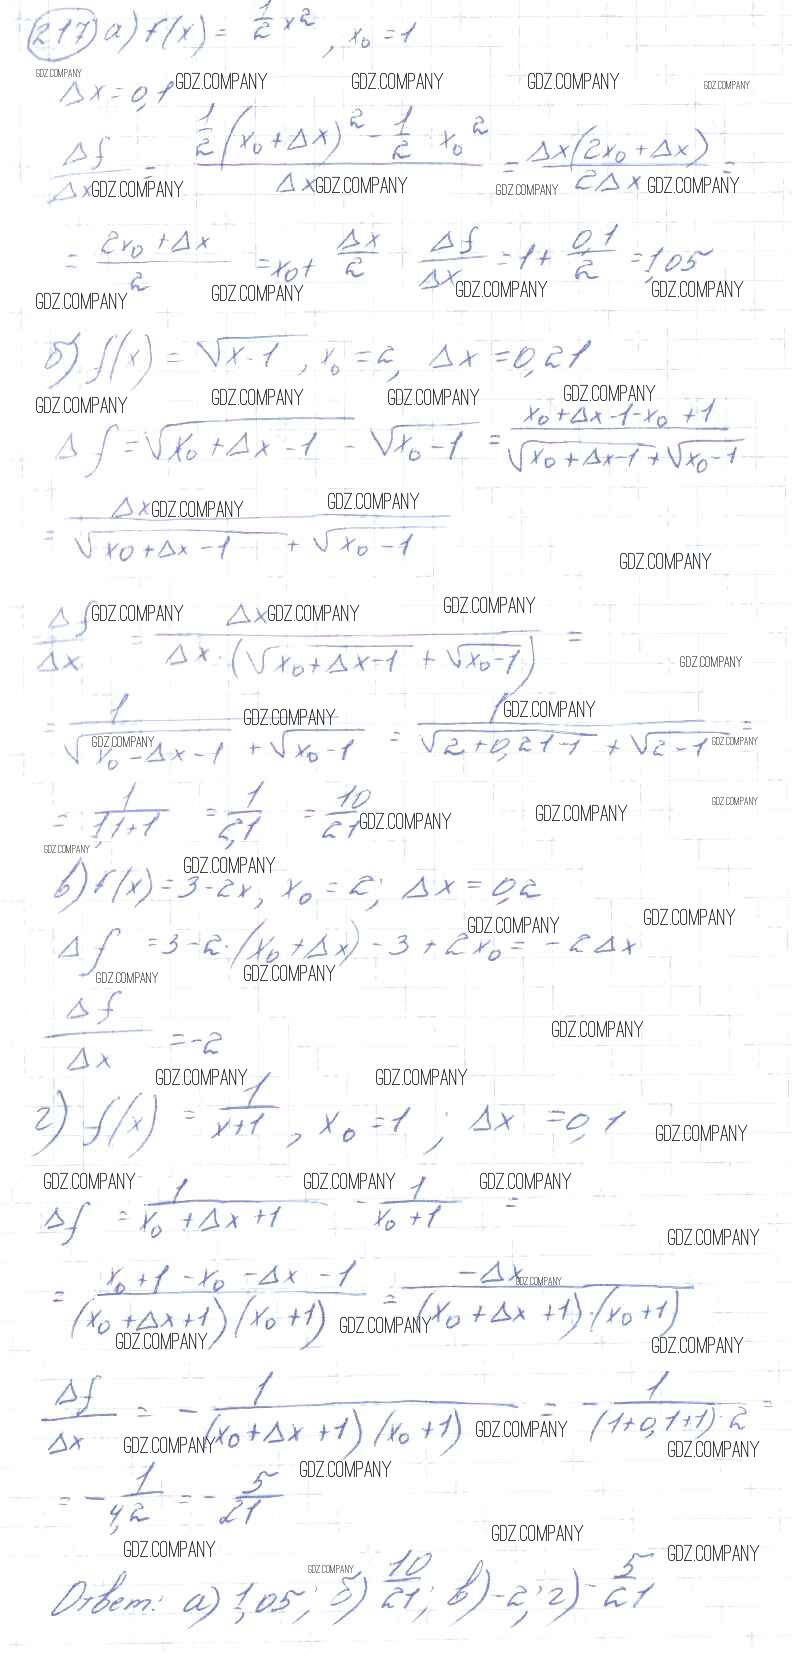 217) а) f(x) = 1/2 x², x₀ = 1
Δx = 0,1
Δf/Δx = (1/2 (x₀ + Δx)² - 1/2 · x₀²)/Δx = Δx(2x₀ + Δx)/2Δx =
= (2x₀ + Δx)/2 = x₀ + Δx/2 Δf/Δx = 1 + 0,1/2 = 1,05
б) f(x) = √(x-1), x₀ = 2, Δx = 0,21
Δf = √(x₀ + Δx - 1) - √(x₀ - 1) = (x₀ + Δx - 1 - x₀ + 1)/(√(x₀ + Δx - 1) + √(x₀ - 1))
= Δx/(√(x₀ + Δx - 1) + √(x₀ - 1))
Δf/Δx = Δx/(Δx · (√(x₀ + Δx - 1) + √(x₀ - 1))) =
= 1/(√(x₀ - Δx - 1) + √(x₀ - 1)) = 1/(√(2 + 0,21 - 1) + √(2 - 1)) =
= 1/(1,1 + 1) = 1/2,1 = 10/21
в) f(x) = 3 - 2x, x₀ = 2; Δx = 0,2
Δf = 3 - 2 · (x₀ + Δx) - 3 + 2x₀ = -2Δx
Δf/Δx = -2
г) f(x) = 1/(x+1), x₀ = 1; Δx = 0,1
Δf = 1/(x₀ + Δx + 1) - 1/(x₀ + 1) =
= (x₀ + 1 - x₀ - Δx - 1)/((x₀ + Δx + 1)(x₀ + 1)) = -Δx/((x₀ + Δx + 1) · (x₀ + 1))
Δf/Δx = - 1/((x₀ + Δx + 1)(x₀ + 1)) = - 1/((1 + 0,1 + 1) · 2) =
= - 1/4,2 = - 5/21
Ответ: а) 1,05; б) 10/21; в) -2; г) - 5/21
GDZ.COMPANY